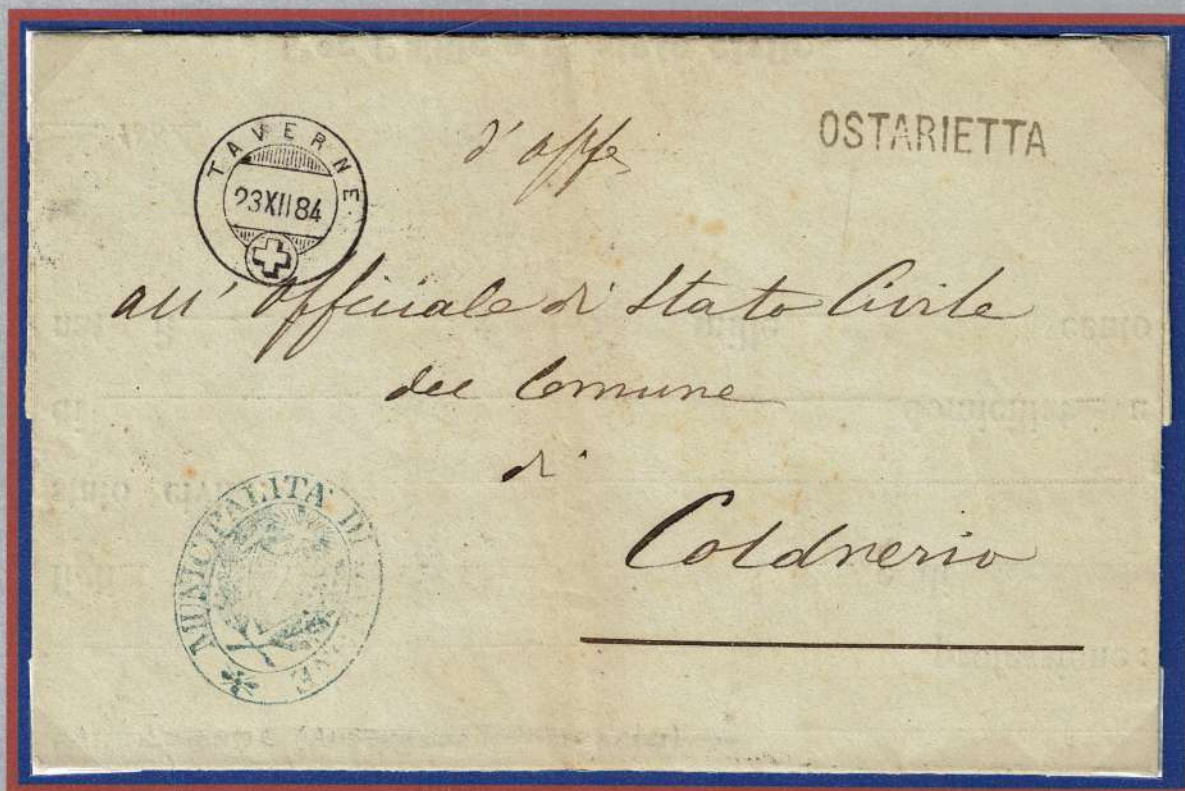 TAVERNE
23XII84
d'affe
OSTARIETTA
all' Officiale di Stato Civile
del Comune
di
Coldrerio
MUNICIPALITÀ DI